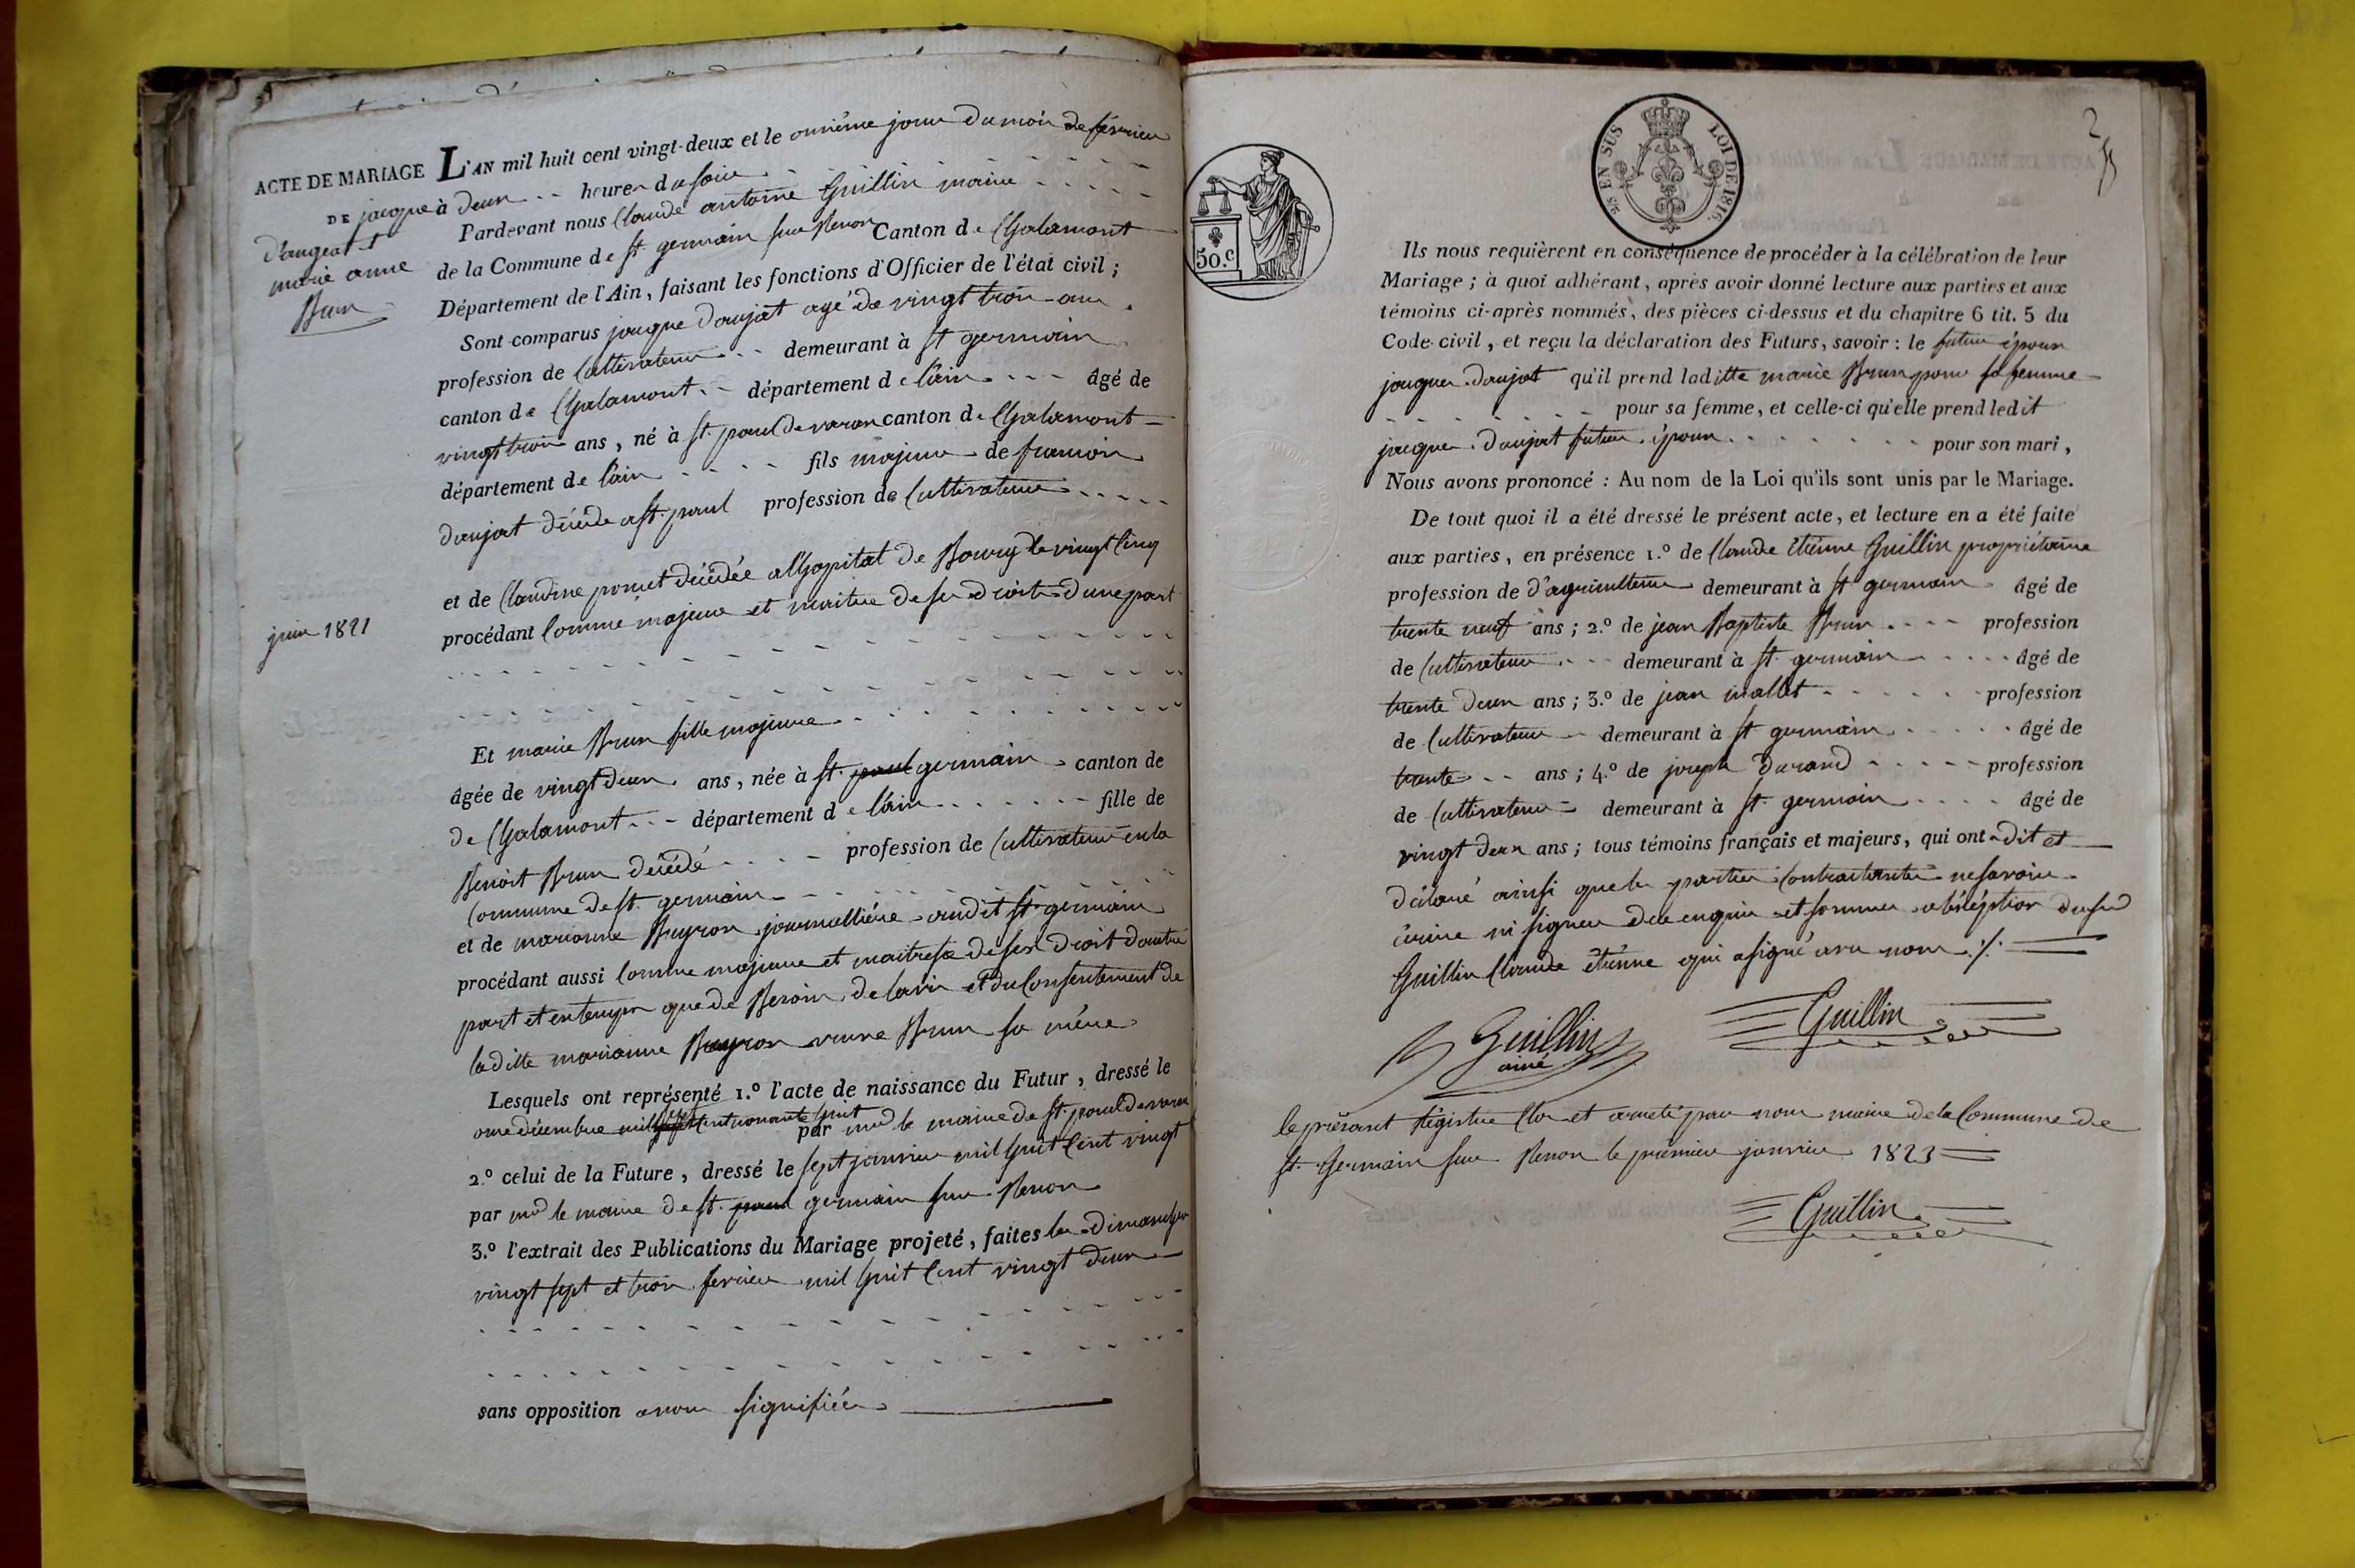 ACTE DE MARIAGE
DE jacque
d'augeat et
marie anne
Brun
juin 1821
L'AN mil huit cent vingt-deux et le onzième jour du mois de février
à deux heures du soir
Pardevant nous Claude antoine Guillin maire
de la Commune de st germain sur Renon Canton de Chalamont
Département de l'Ain, faisant les fonctions d'Officier de l'état civil ;
Sont comparus jacque daujat agé de vingt trois ans
profession de Cultivateur demeurant à st germain
canton de Chalamont département de l'ain âgé de
vingt trois ans, né à st. paul de varax canton de Chalamont
département de l'ain fils majeur de francois
daujat décédé a st. paul profession de Cultivateur
et de Claudine décédée a l'hopital de Bourg le vingt Cinq
procédant Comme majeur et maitre de ses droits d'une part
Et marie Brun fille majeure
âgée de vingt deux ans, née à st. paul germain canton de
de Chalamont département de l'ain fille de
Benoit Brun décédé profession de Cultivateur en la
Commune de st. germain
et de marianne Buyron journallière audit st. germain
procédant aussi Comme majeure et maitresse de ses droit d'autre
part et en temps que de Besoin de l'avis et du Consentement de
laditte marianne Buyron veuve Brun sa mère
Lesquels ont représenté 1.º l'acte de naissance du Futur, dressé le
onze décembre mil sept Cent nonante huit par mr le maire de st. paul de varax
2.º celui de la Future, dressé le sept janvier mil huit Cent vingt
par mr le maire de st. paul germain sur Renon
3.º l'extrait des Publications du Mariage projeté, faites les dimanches
vingt sept et trois fevrier mil huit Cent vingt deux
sans opposition a nous signifiée
50.C
EN SUS
LOI DE 1816.
2
Ils nous requièrent en conséquence de procéder à la célébration de leur
Mariage ; à quoi adhérant, après avoir donné lecture aux parties et aux
témoins ci-après nommés, des pièces ci-dessus et du chapitre 6 tit. 5 du
Code civil, et reçu la déclaration des Futurs, savoir : le futur époux
jacques daujat qu'il prend laditte marie Brun pour sa femme
pour sa femme, et celle-ci qu'elle prend ledit
jacques daujat futur époux pour son mari,
Nous avons prononcé : Au nom de la Loi qu'ils sont unis par le Mariage.
De tout quoi il a été dressé le présent acte, et lecture en a été faite
aux parties, en présence 1.º de Claude étienne Guillin propriétaire
profession de d'agriculteur demeurant à st germain âgé de
trente neuf ans ; 2.º de jean Baptiste Brun profession
de Cultivateur demeurant à st. germain âgé de
trente deux ans ; 3.º de jean mallet profession
de Cultivateur demeurant à st germain âgé de
trente ans ; 4.º de joseph durand profession
de Cultivateur demeurant à st. germain âgé de
vingt deux ans ; tous témoins français et majeurs, qui ont dit et
déclaré ainsi que les parties Contractantes ne savoir
écrire ni signer de ce enquis et sommés a l'éxéption dusud
Guillin Claude étienne qui a signé avec nous ./.
Guillin
ainé
Guillin
le présent régistre Clos et arreté par nous maire de la Commune de
st. Germain sur Renon le premier janvier 1823
Guillin